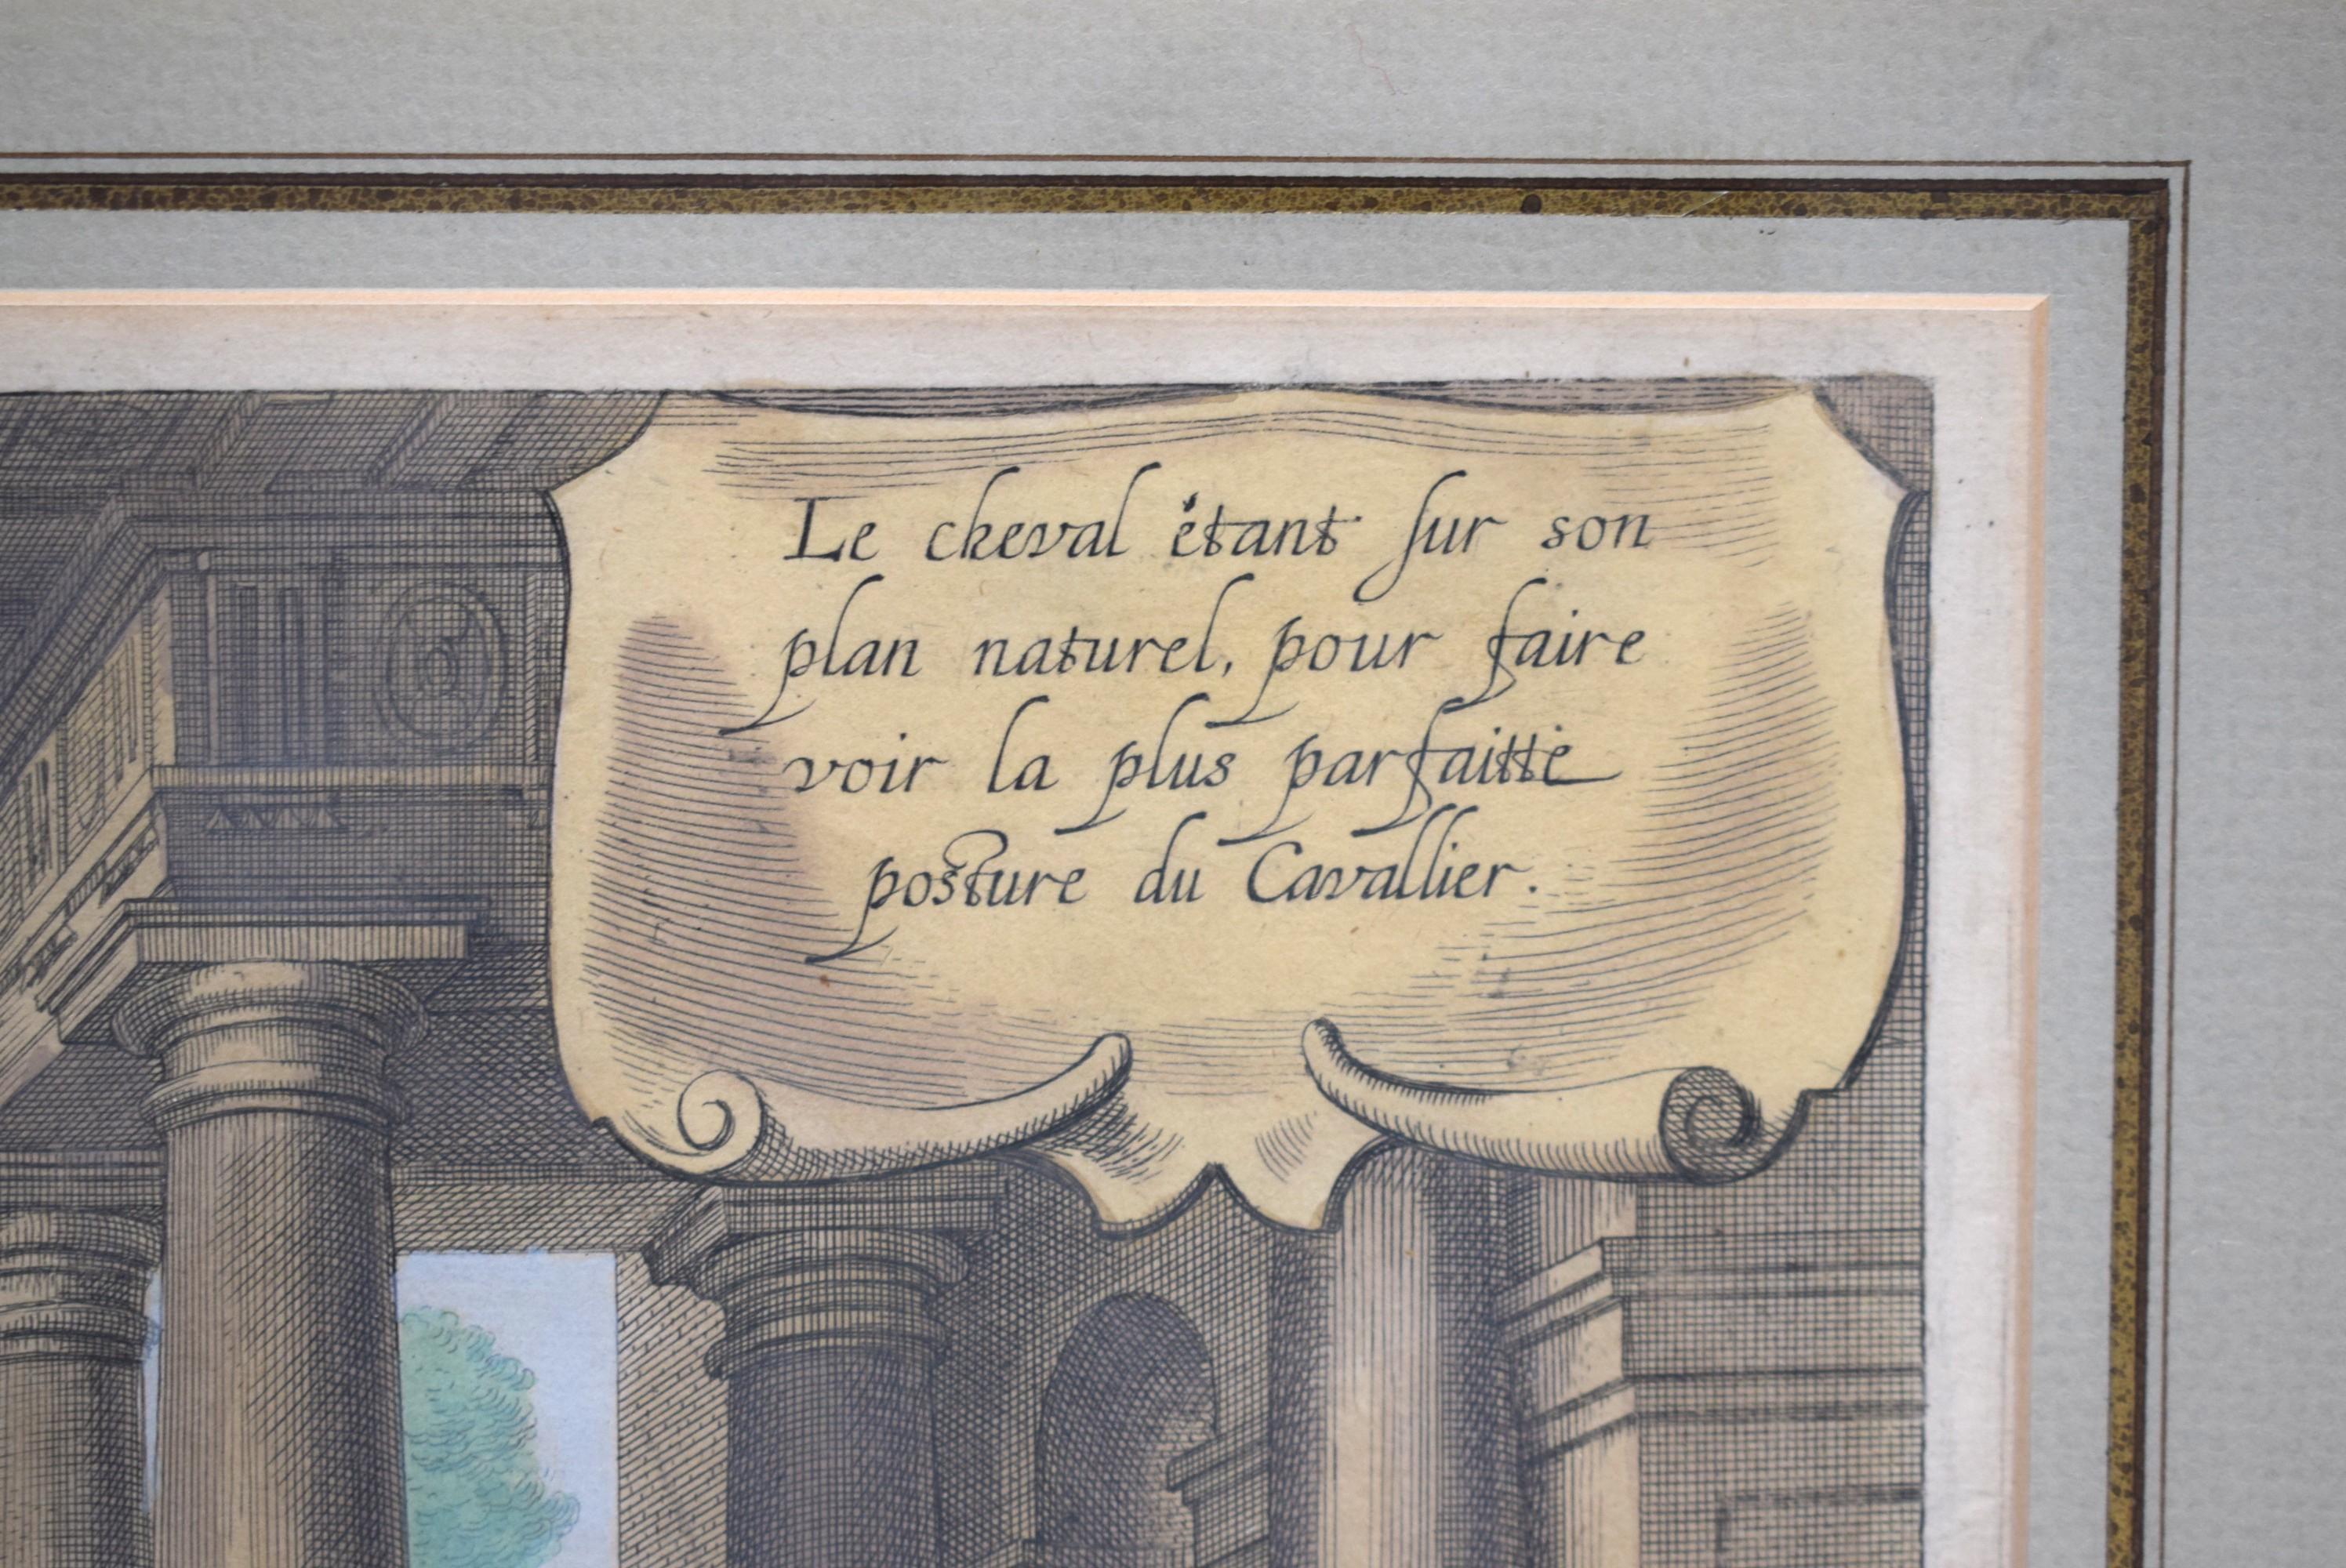 Le cheval étant ſur son
plan naturel, pour faire
voir la plus parfaitte
posture du Cavallier.